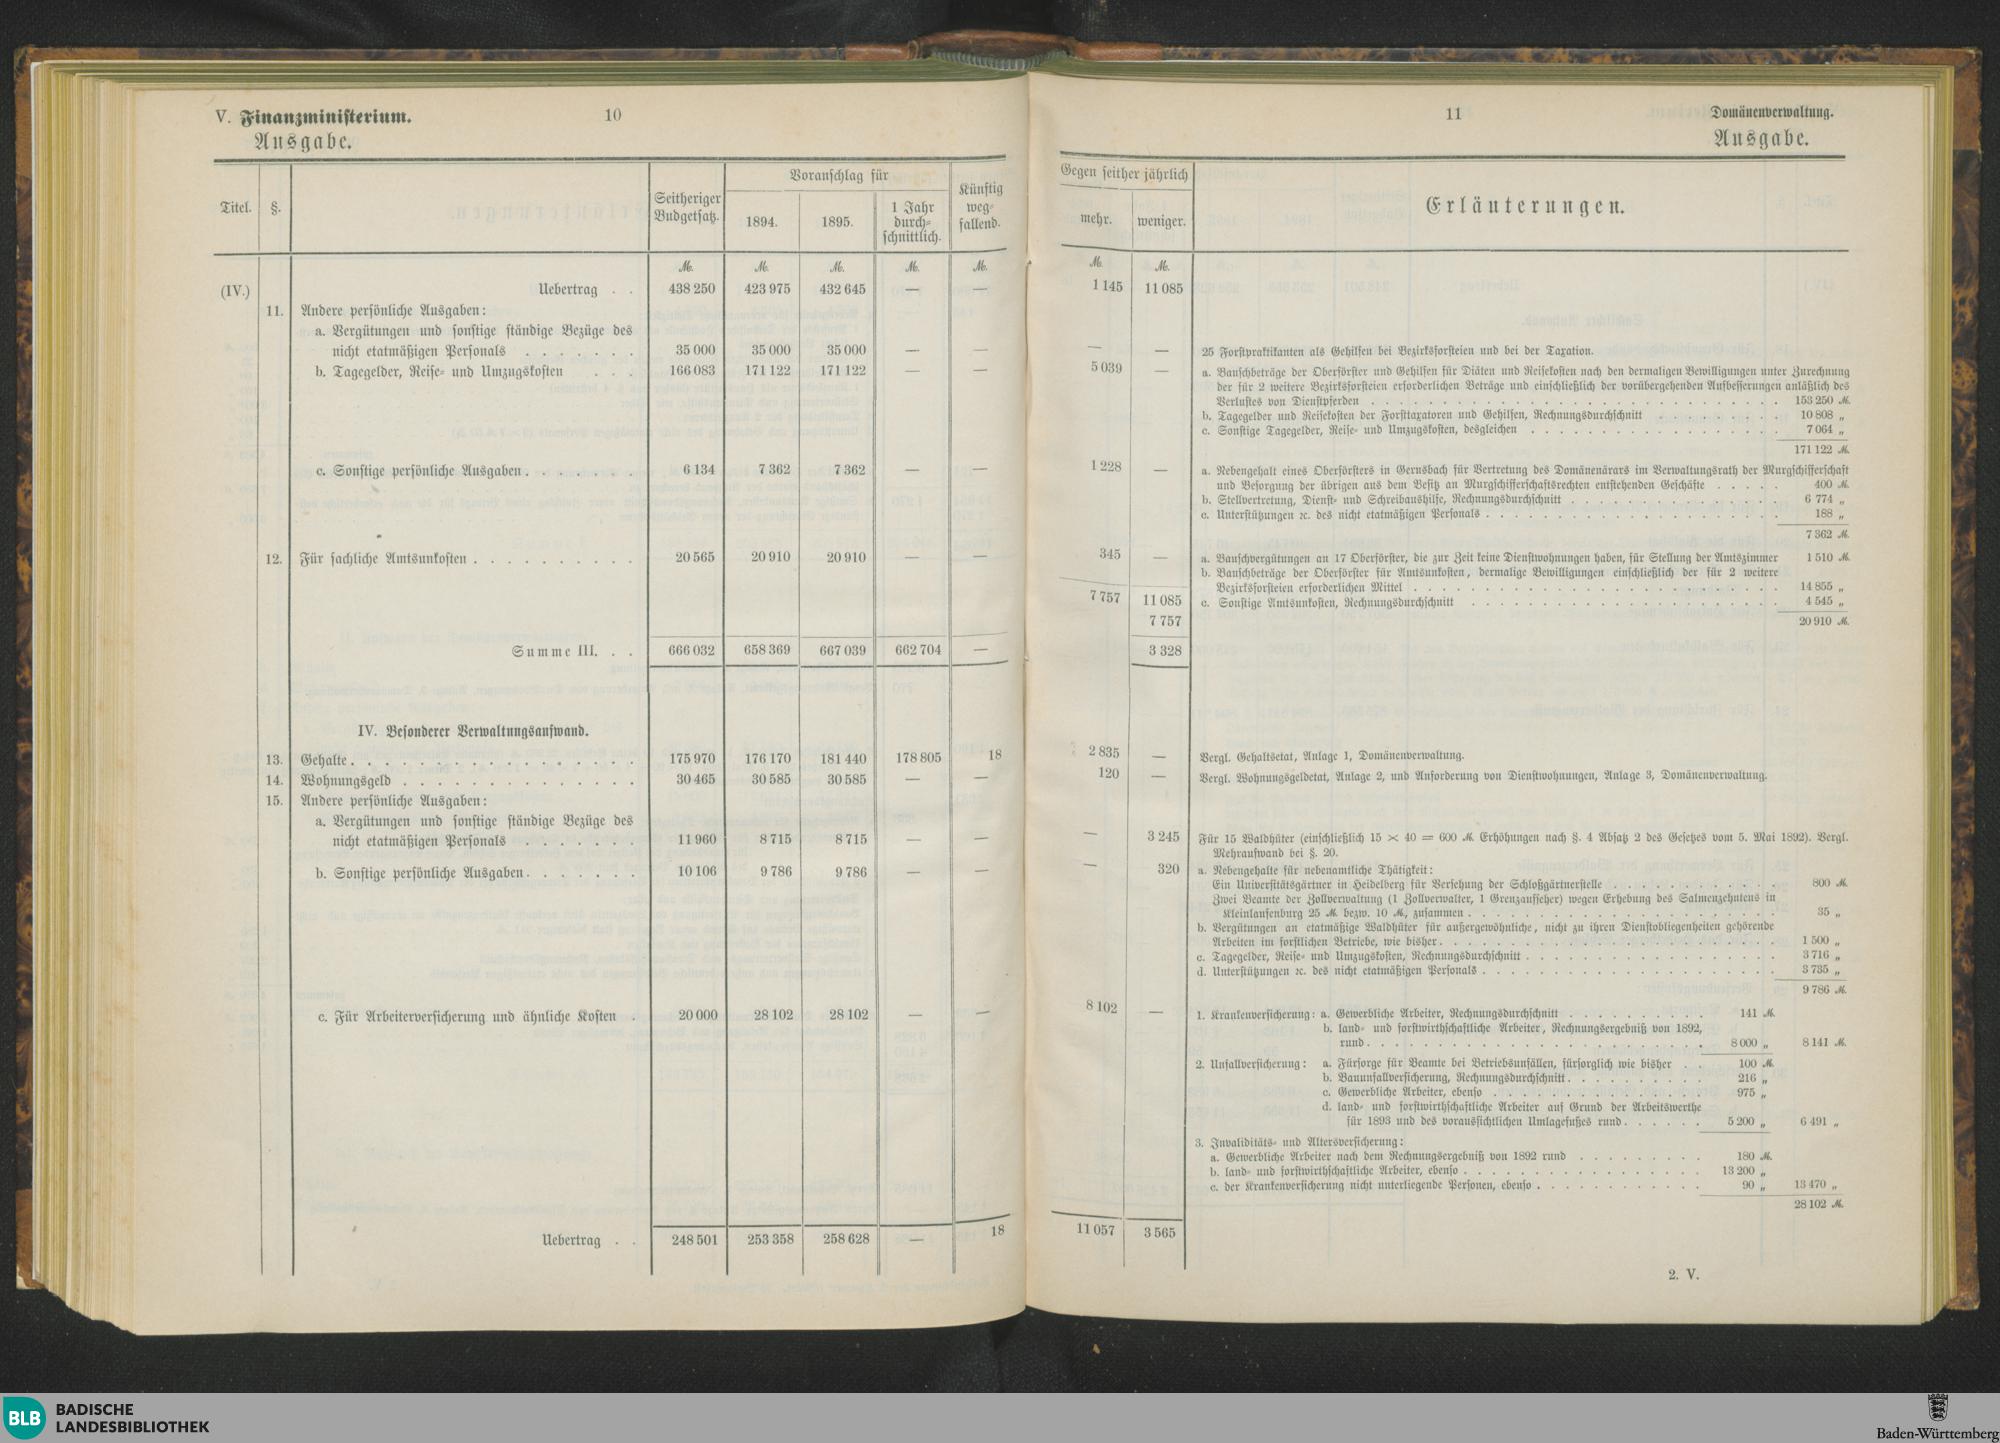 V. Finanzministerium.
10
Ausgabe.
Titel.
§.
Seitheriger Budgetsatz.
Voranschlag für
1894.
1895.
1 Jahr durch-schnittlich.
Künftig weg-fallend.
M. M. M. M. M.
(IV.) Uebertrag . . 438 250 423 975 432 645 — —
11. Andere persönliche Ausgaben:
a. Vergütungen und sonstige ständige Bezüge des
nicht etatmäßigen Personals . . . . . . . 35 000 35 000 35 000 — —
b. Tagegelder, Reise- und Umzugskosten . . . 166 083 171 122 171 122 — —
c. Sonstige persönliche Ausgaben . . . . . . . 6 134 7 362 7 362 — —
12. Für sachliche Amtsunkosten . . . . . . . . . . 20 565 20 910 20 910 — —
Summe III. . . 666 032 658 369 667 039 662 704 —
IV. Besonderer Verwaltungsaufwand.
13. Gehalte . . . . . . . . . . . . . . . . . 175 970 176 170 181 440 178 805 18
14. Wohnungsgeld . . . . . . . . . . . . . . 30 465 30 585 30 585 — —
15. Andere persönliche Ausgaben:
a. Vergütungen und sonstige ständige Bezüge des
nicht etatmäßigen Personals . . . . . . . 11 960 8 715 8 715 — —
b. Sonstige persönliche Ausgaben . . . . . . . 10 106 9 786 9 786 — —
c. Für Arbeiterversicherung und ähnliche Kosten . 20 000 28 102 28 102 — —
Uebertrag . . 248 501 253 358 258 628 — 18
11
Domänenverwaltung.
Ausgabe.
Gegen seither jährlich
mehr.
weniger.
Erläuterungen.
M. M.
1 145 11 085
— — 25 Forstpraktikanten als Gehilfen bei Bezirksforsteien und bei der Taxation.
5 039 — a. Bauschbeträge der Oberförster und Gehilfen für Diäten und Reisekosten nach den dermaligen Bewilligungen unter Zurechnung
der für 2 weitere Bezirksforsteien erforderlichen Beträge und einschließlich der vorübergehenden Aufbesserungen anläßlich des
Verlustes von Dienstpferden . . . . . . . . . . 153 250 M.
b. Tagegelder und Reisekosten der Forsttaxatoren und Gehilfen, Rechnungsdurchschnitt . . . . . . 10 808 „
c. Sonstige Tagegelder, Reise- und Umzugskosten, desgleichen . . . . . . . . . . 7 064 „
171 122 M.
1 228 — a. Nebengehalt eines Oberförsters in Gernsbach für Vertretung des Domänenärars im Verwaltungsrath der Murgschifferschaft
und Besorgung der übrigen aus dem Besitz an Murgschifferschaftsrechten entstehenden Geschäfte . . . . . 400 M.
b. Stellvertretung, Dienst- und Schreibaushilfe, Rechnungsdurchschnitt . . . . . . . . . . 6 774 „
c. Unterstützungen ꝛc. des nicht etatmäßigen Personals . . . . . . . . . . 188 „
7 362 M.
345 — a. Bauschvergütungen an 17 Oberförster, die zur Zeit keine Dienstwohnungen haben, für Stellung der Amtszimmer 1 510 M.
b. Bauschbeträge der Oberförster für Amtsunkosten, dermalige Bewilligungen einschließlich der für 2 weitere
Bezirksforsteien erforderlichen Mittel . . . . . . . . . . 14 855 „
7 757 11 085 c. Sonstige Amtsunkosten, Rechnungsdurchschnitt . . . . . . . . . . 4 545 „
7 757 20 910 M.
3 328
2 835 — Vergl. Gehaltsetat, Anlage 1, Domänenverwaltung.
120 — Vergl. Wohnungsgeldetat, Anlage 2, und Anforderung von Dienstwohnungen, Anlage 3, Domänenverwaltung.
— 3 245 Für 15 Waldhüter (einschließlich 15 × 40 = 600 M. Erhöhungen nach §. 4 Absatz 2 des Gesetzes vom 5. Mai 1892). Vergl.
Mehraufwand bei §. 20.
— 320 a. Nebengehalte für nebenamtliche Thätigkeit:
Ein Universitätsgärtner in Heidelberg für Versehung der Schloßgärtnerstelle . . . . . . . . . . 800 M.
Zwei Beamte der Zollverwaltung (1 Zollverwalter, 1 Grenzaufseher) wegen Erhebung des Salmenzehntens in
Kleinlaufenburg 25 M. bezw. 10 M., zusammen . . . . . . . . . . 35 „
b. Vergütungen an etatmäßige Waldhüter für außergewöhnliche, nicht zu ihren Dienstobliegenheiten gehörende
Arbeiten im forstlichen Betriebe, wie bisher . . . . . . . . . . 1 500 „
c. Tagegelder, Reise- und Umzugskosten, Rechnungsdurchschnitt . . . . . . . . . . 3 716 „
d. Unterstützungen ꝛc. des nicht etatmäßigen Personals . . . . . . . . . . 3 735 „
9 786 M.
8 102 — 1. Krankenversicherung: a. Gewerbliche Arbeiter, Rechnungsdurchschnitt . . . . . . . . . 141 M.
b. land- und forstwirthschaftliche Arbeiter, Rechnungsergebniß von 1892,
rund . . . . . . . . . . 8 000 „ 8 141 M.
2. Unfallversicherung: a. Fürsorge für Beamte bei Betriebsunfällen, fürsorglich wie bisher 100 M.
b. Bauunfallversicherung, Rechnungsdurchschnitt . . . . . . . . . 216 „
c. Gewerbliche Arbeiter, ebenso . . . . . . . . . . 975 „
d. land- und forstwirthschaftliche Arbeiter auf Grund der Arbeitswerthe
für 1893 und des voraussichtlichen Umlagefußes rund . . . . . . 5 200 „ 6 491 „
3. Invaliditäts- und Altersversicherung:
a. Gewerbliche Arbeiter nach dem Rechnungsergebniß von 1892 rund . . . . . . . . . 180 M.
b. land- und forstwirthschaftliche Arbeiter, ebenso . . . . . . . . . . 13 200 „
c. der Krankenversicherung nicht unterliegende Personen, ebenso . . . . . . . . . . 90 „ 13 470 „
28 102 M.
11 057 3 565
2. V.
BLB
BADISCHE
LANDESBIBLIOTHEK
Baden-Württemberg